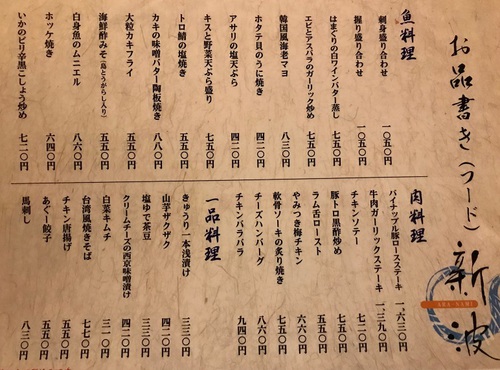 お品書き（フード）
新波
ARA-NAMI
魚料理
刺身盛り合わせ 一、〇五〇円
握り盛り合わせ 一、〇五〇円
はまぐりの白ワインバター蒸し 七五〇円
エビとアスパラのガーリック炒め 七五〇円
韓国風海老マヨ 八三〇円
ホタテ貝のうに焼き 四二〇円
アサリの塩天ぷら 四二〇円
キスと野菜天ぷら盛り 七五〇円
トロ鯖の塩焼き 五五〇円
カキの味噌バター陶板焼き 八八〇円
大粒カキフライ 五五〇円
海鮮酢みそ（島とうがらし入り） 五五〇円
白身魚のムニエル 八六〇円
ホッケ焼き 六四〇円
いかのピリ辛黒こしょう炒め 七二〇円
肉料理
パイナップル豚ロースステーキ 一、六三〇円
牛肉ガーリックステーキ 一、三九〇円
チキンソテー 七二〇円
豚トロ黒酢炒め 五五〇円
ラム舌ロースト 五五〇円
やみつき梅チキン 六六〇円
軟骨ソーキの炙り焼き 七五〇円
チーズハンバーグ 八六〇円
チキンバラバラ 九四〇円
一品料理
きゅうり一本浅漬け 三三〇円
山芋ザクザク 四二〇円
塩ゆで茶豆 三三〇円
クリームチーズの西京味噌漬け 四二〇円
白菜キムチ 三一〇円
台湾風焼きそば 七七〇円
チキン唐揚げ 五五〇円
あぐー餃子 五五〇円
馬刺し 八三〇円